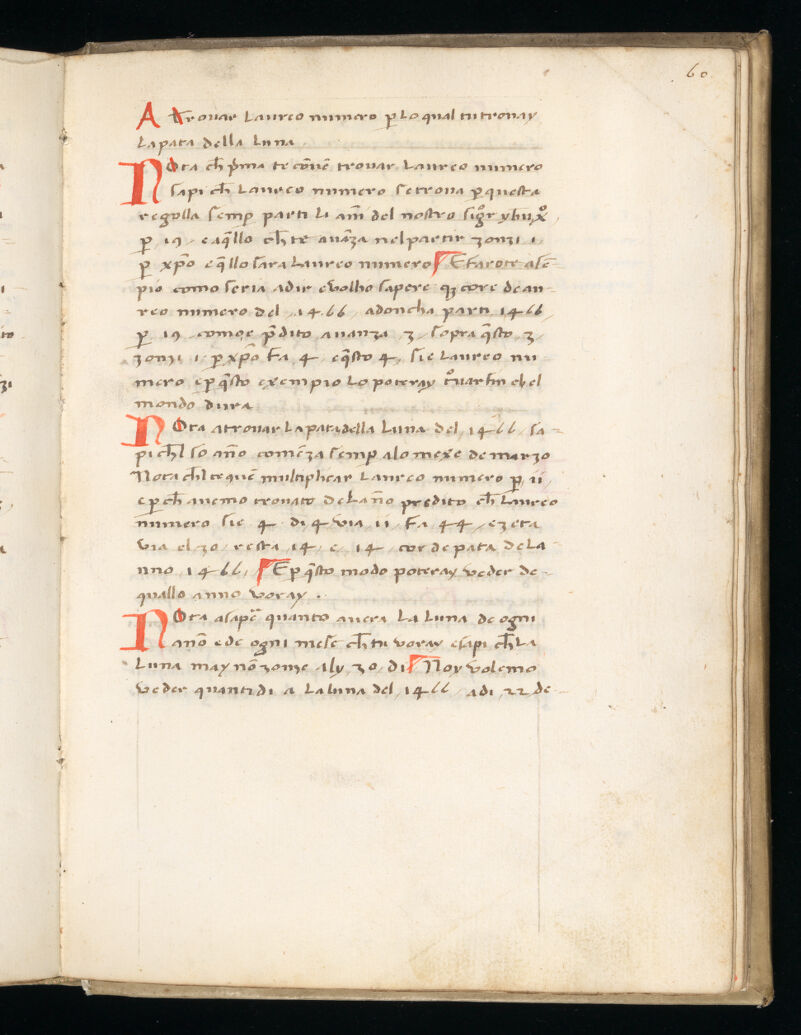 60
A trouar Laureo numero p̱ lo qual tu trouay
La pata della Luna .
NOta ch̄ p̄ma te cōuē trouar Laureo numero
sapi ch̄ Laureo numero se troua p̱ questa
regolla semp̱ parti li am̄ del nostro
p̱ , 19 , e aq̄llo ch̄ te auāza nel partir zonzi 1 ,
p̱ xp̄o e q̄llo sara Laureo numero E farote asē-
pio como seria a dir e volho sapere q̄ core de au-
reo numero del , 1466 , adoncha parti 1466 ,
p̱ 19 , como e p̄dito auanza , 3 , sopra q̄sto 3 ,
zonzi 1 , p̱ xp̄o Fa , 4 , e q̄sto 4 , sie Laureo nu-
mero e p̱ q̄sto exempio lo poteray el
mondo dura
NOta a trouar La pata della Luna del , 1466 , sa-
pi ch̄l so año comēza semp̱ a lo mexe de marzo
Nota ch̄l te quē multiplicar Laureo numero p̱ ii ,
e p̱ ch̄ auemo trouato de La ño predito ch̄ Laureo
numero sie 4 di 4 via , ii , Fa , 44 , e zeta
via el 30 , resta , 14 , e , 14 , cor de pata de La
nno , 1466 , E p̱ q̄sto modo poteray veder de
quallo anno voray .
NOta a sapē quanto auera La Luna de ogni
anō e de ogni mese ch̄ tu voray e sapi ch̄ La
Luna may nō zonze aly , 30 , di Noy volemo
veder quanti di a La luna del , 1466 , adi , 22 de